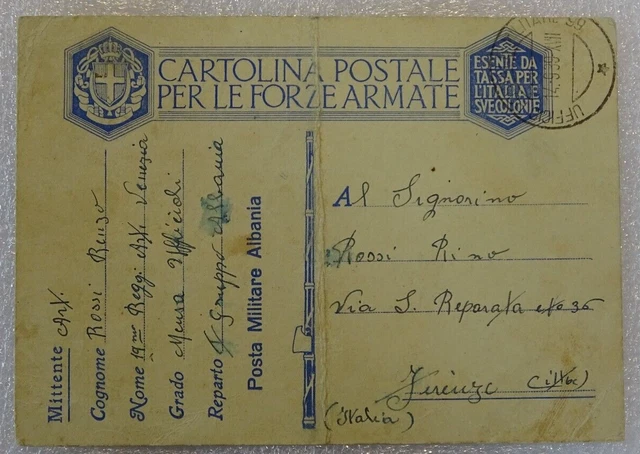 CARTOLINA POSTALE
PER LE FORZE ARMATE
ESENTE DA
TASSA PER
L'ITALIA E
SVE COLONIE
UFFICIO
Mittente Art.
Cognome Rossi Renzo
Nome 19mo Regg Art. Venezia
Grado Mensa Ufficiali
Reparto Gruppo Albania
Posta Militare Albania
Al Signorino
Rossi Rino
Via S. Reparata 36
Firenze
(Italia)